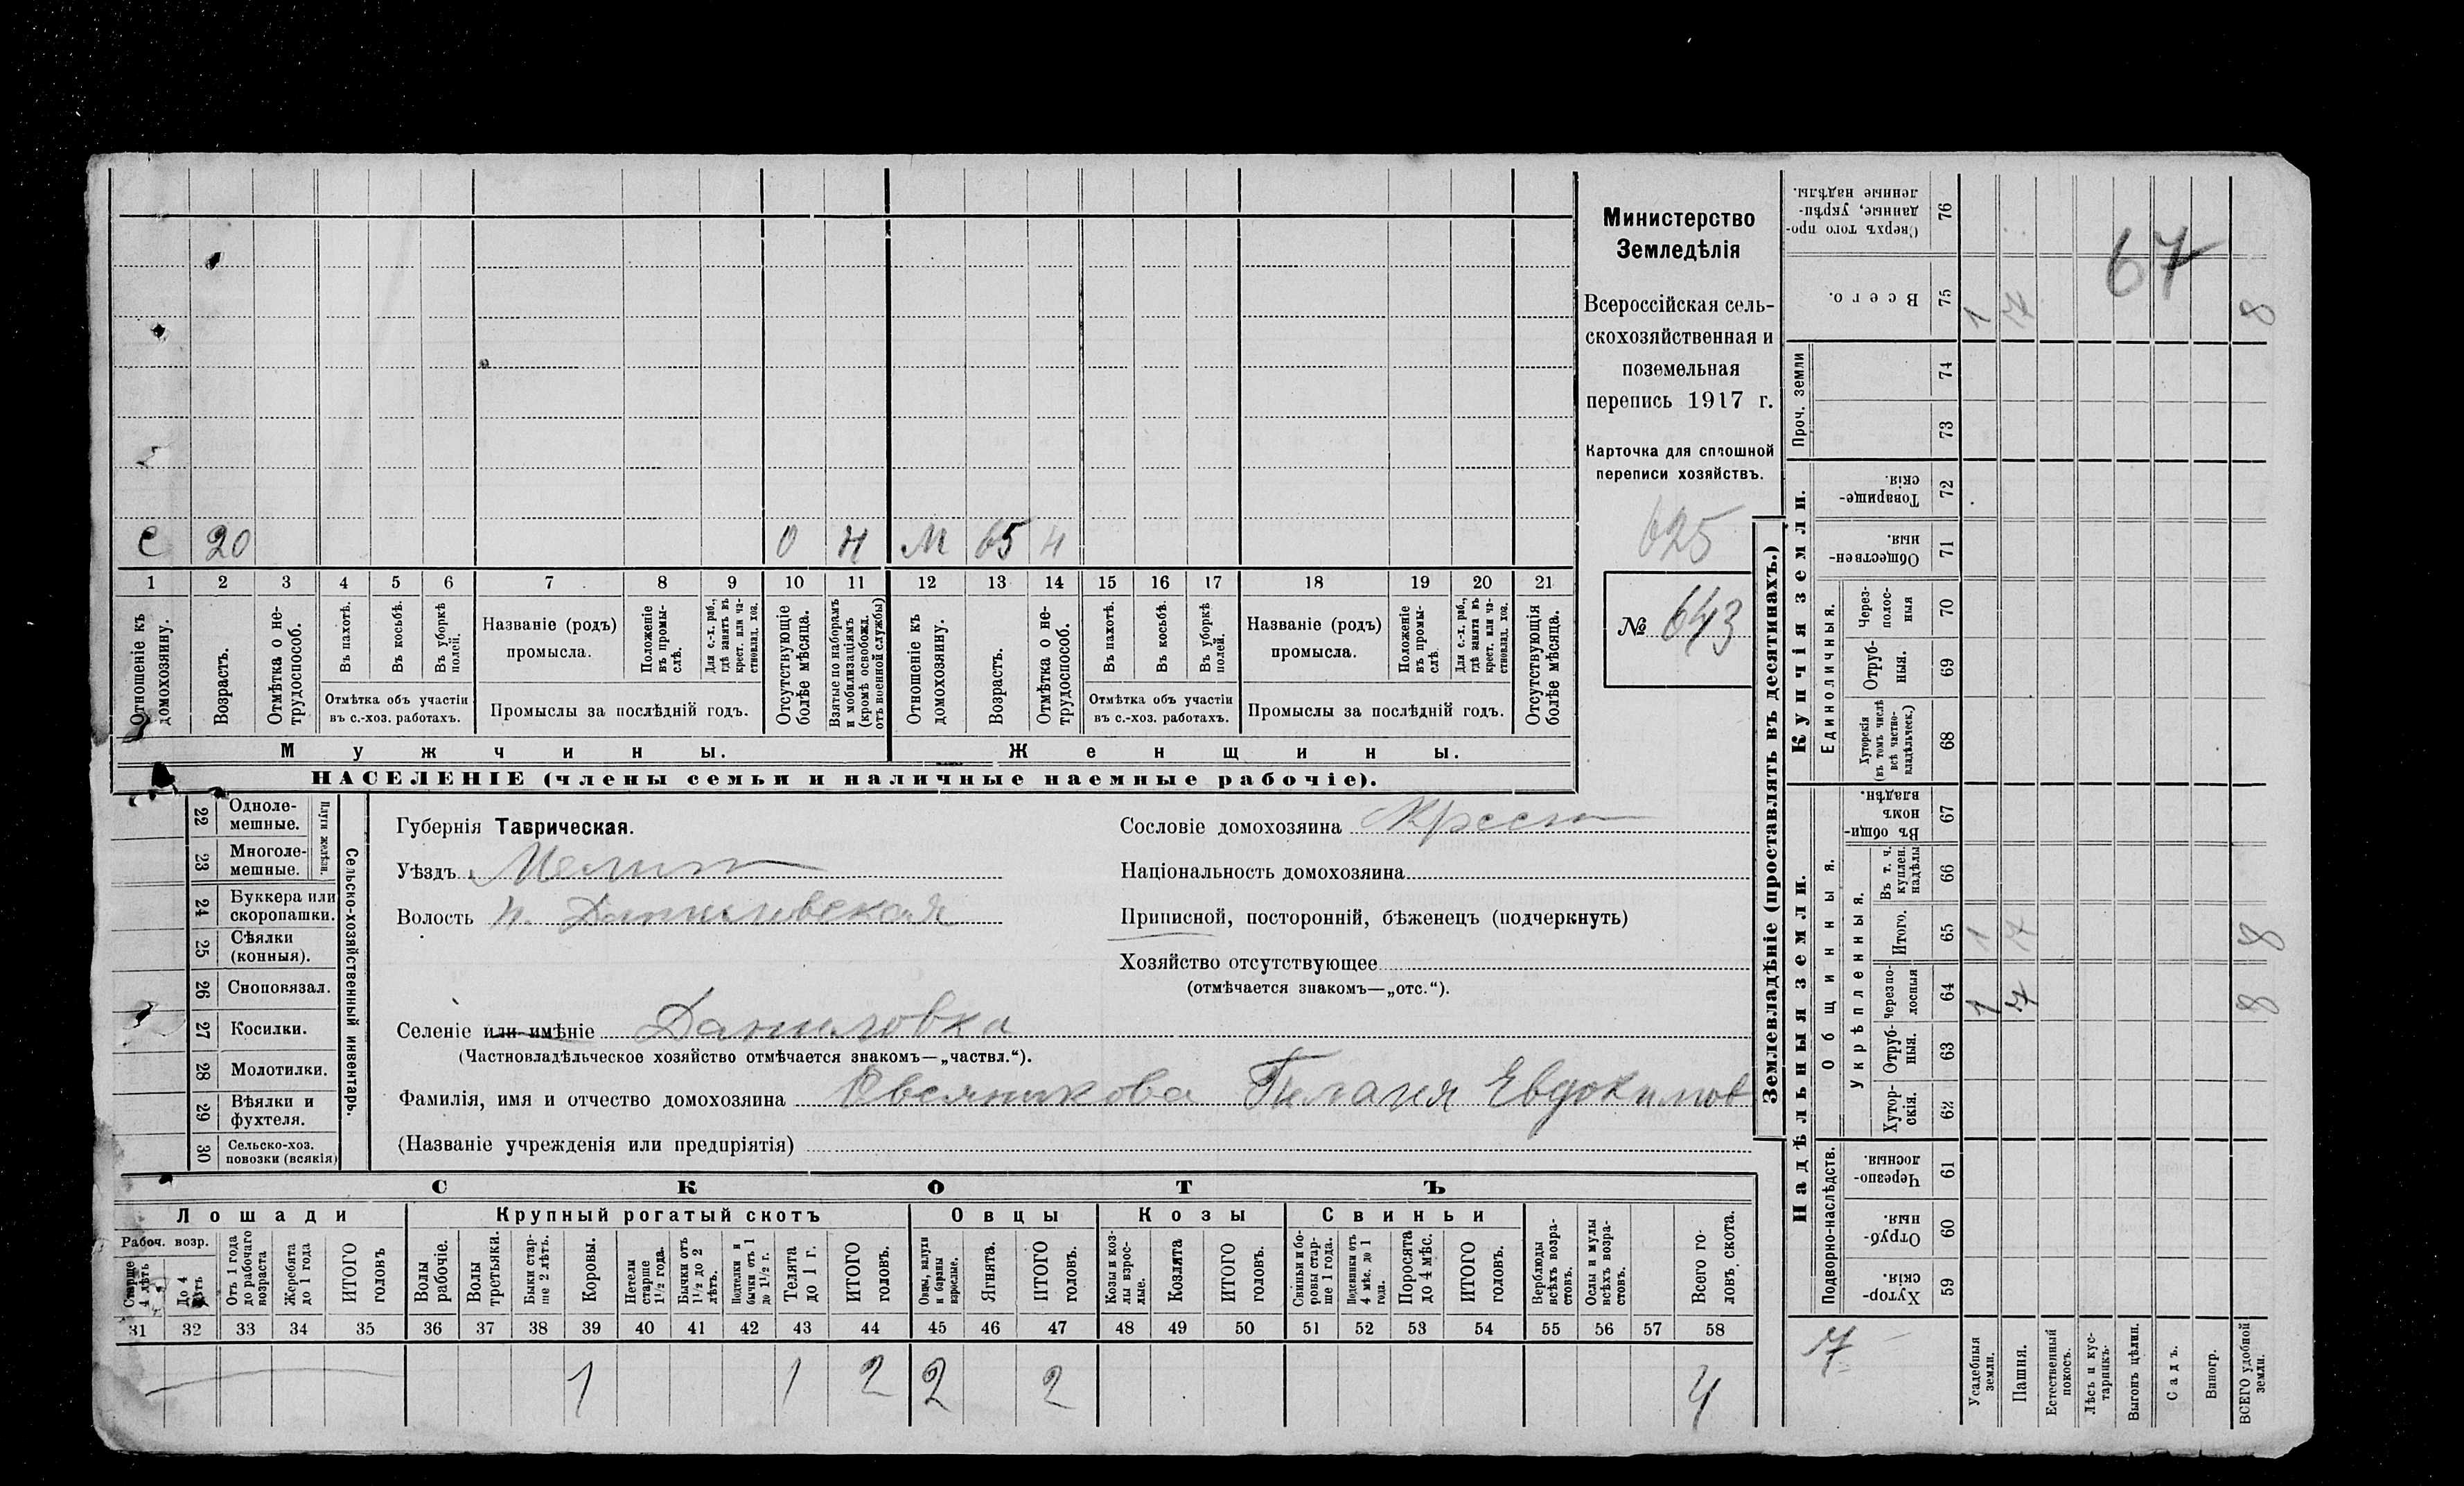 С 20 О Н М 65 Н
1 2 3 4 5 6 7 8 9 10 11 12 13 14 15 16 17 18 19 20 21
Отношеніе къ домохозяину.
Возрастъ.
Отмѣтка о нетрудоспособ.
Въ пахотѣ.
Въ косьбѣ.
Въ уборкѣ полей.
Отмѣтка объ участіи
въ с.-хоз. работахъ.
Названіе (родъ)
промысла.
Положеніе въ промыслѣ.
Для с.-х. раб., гдѣ занятъ въ крест. или частновлад. хоз.
Промыслы за послѣдній годъ.
Отсутствующіе болѣе мѣсяца.
Взятые по наборамъ и мобилизаціямъ (кромѣ освобожд. отъ военной службы)
Отношеніе къ домохозяину.
Возрастъ.
Отмѣтка о нетрудоспособ.
Въ пахотѣ.
Въ косьбѣ.
Въ уборкѣ полей.
Отмѣтка объ участіи
въ с.-хоз. работахъ.
Названіе (родъ)
промысла.
Положеніе въ промыслѣ.
Для с.-х. раб., гдѣ занята въ крест. или частновлад. хоз.
Промыслы за послѣдній годъ.
Отсутствующія болѣе мѣсяца.
Мужчины. Женщины.
НАСЕЛЕНІЕ (члены семьи и наличные наемные рабочіе).
Министерство
Земледѣлія
Всероссійская сель-
скохозяйственная и
поземельная
перепись 1917 г.
Карточка для сплошной
переписи хозяйствъ.
625
№ 643
22 Одноле-
мешные.
23 Многоле-
мешные.
Плуги желѣзн.
24 Буккера или
скоропашки.
25 Сѣялки
(конныя).
26 Сноповязал.
27 Косилки.
28 Молотилки.
29 Вѣялки и
фухтеля.
30 Сельско-хоз.
повозки (всякія)
Сельско-хозяйственный инвентарь.
Губернія Таврическая.
Уѣздъ Мелит
Волость Н. Даниловская
Сословіе домохозяина Крест
Національность домохозяина
Приписной, посторонній, бѣженецъ (подчеркнуть)
Хозяйство отсутствующее
(отмѣчается знакомъ—„отс.“).
Селеніе или имѣніе Даниловка
(Частновладѣльческое хозяйство отмѣчается знакомъ—„частвл.“).
Фамилія, имя и отчество домохозяина Овсяникова Пелагия Евдокимов
(Названіе учрежденія или предпріятія)
СКОТЪ
Лошади Крупный рогатый скотъ Овцы Козы Свиньи
Рабоч. возр.
Старше 4 лѣтъ
До 4 лѣтъ
Отъ 1 года до рабочаго возраста
Жеребята до 1 года
ИТОГО головъ
Волы рабочіе.
Волы третьяки.
Быки старше 2 лѣтъ.
Коровы.
Нетели старше 1½ года.
Бычки отъ 1½ до 2 лѣтъ.
Подтелки и бычки отъ 1 до 1½ г.
Телята до 1 г.
ИТОГО головъ.
Овцы, валухи и бараны взрослые.
Ягнята.
ИТОГО головъ.
Козы и козлы взрослые.
Козлята
ИТОГО головъ.
Свиньи и боровы старше 1 года.
Подсвинки отъ 4 мѣс. до 1 года.
Поросята до 4 мѣс.
ИТОГО головъ.
Верблюды всѣхъ возрастовъ.
Ослы и мулы всѣхъ возрастовъ.
Всего головъ скота.
31 32 33 34 35 36 37 38 39 40 41 42 43 44 45 46 47 48 49 50 51 52 53 54 55 56 57 58
1 1 2 2 2 4
Землевладѣніе (проставлять въ десятинахъ.)
67
Сверхъ того проданные, укрѣпленные надѣлы. 76
Всего. 75 1 7 8
Проч. земли 74
73
Купчія земли.
Товарищескія. 72
Общественныя. 71
Единоличныя.
Черезполосныя 70
Отрубныя. 69
Хуторскія (въ томъ числѣ всѣ частновладѣльческ.) 68
Надѣльныя земли.
Общинныя.
Въ общиномъ владѣн. 67
Укрѣпленныя.
Въ т. ч. куплен. надѣлы 66
Итого. 65 1 7 8
Черезполосныя 64 1 7 8
Отрубныя. 63
Хуторскія. 62
Подворно-наслѣдств.
Черезполосныя. 61
Отрубныя. 60
Хуторскія. 59
7
Усадебныя земли.
Пашня.
Естественный покосъ.
Лѣсъ и кустарникъ.
Выгонъ цѣлин.
Садъ.
Виногр.
ВСЕГО удобной земли.